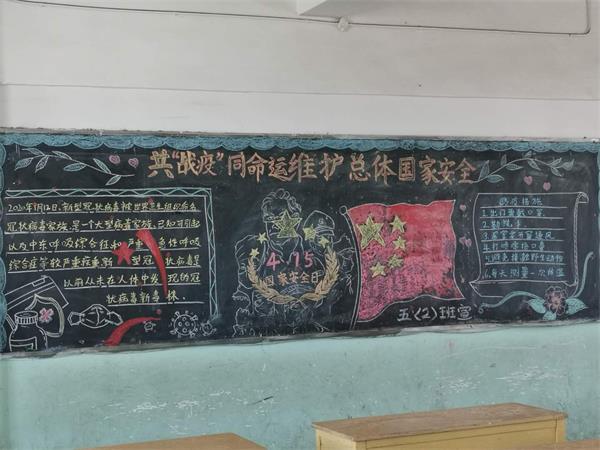 共“战疫”同命运维护总体国家安全
2020年1月12日，新型冠状病毒被世界卫生组织命名
冠状病毒家族，是一个大型病毒家族，已知可引起
以及中东呼吸综合征和严重急性呼吸
综合征等较严重疾病新型冠状病毒是
以前从未在人体中发现的冠
状病毒新毒株。
4.15
国家安全日
防疫措施
1.出门要戴口罩
2.勤洗手
4.打喷嚏捂口鼻
5.避免接触野生动物
6.每天测量一次体温
五（2）班宣